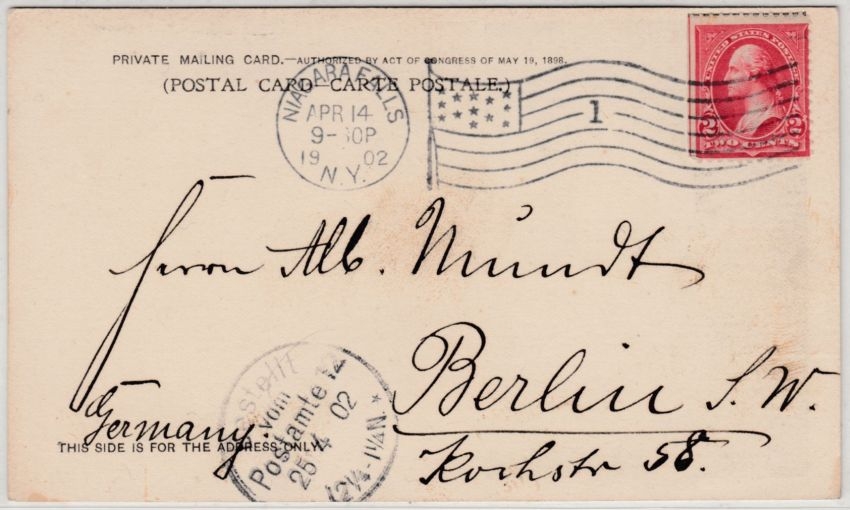 PRIVATE MAILING CARD.—AUTHORIZED BY ACT OF CONGRESS OF MAY 19, 1898.
(POSTAL CARD—CARTE POSTALE.)
NIAGARA FALLS
APR 14
9-30P
19 02
N.Y.
1
UNITED STATES POSTAGE
2 2
TWO CENTS
Herrn Alb. Mundt
Berlin S.W.
Kochstr 58.
Germany.
THIS SIDE IS FOR THE ADDRESS ONLY.
Bestellt
vom
Postamte 12
25 4 02
12¼-1¼N. *